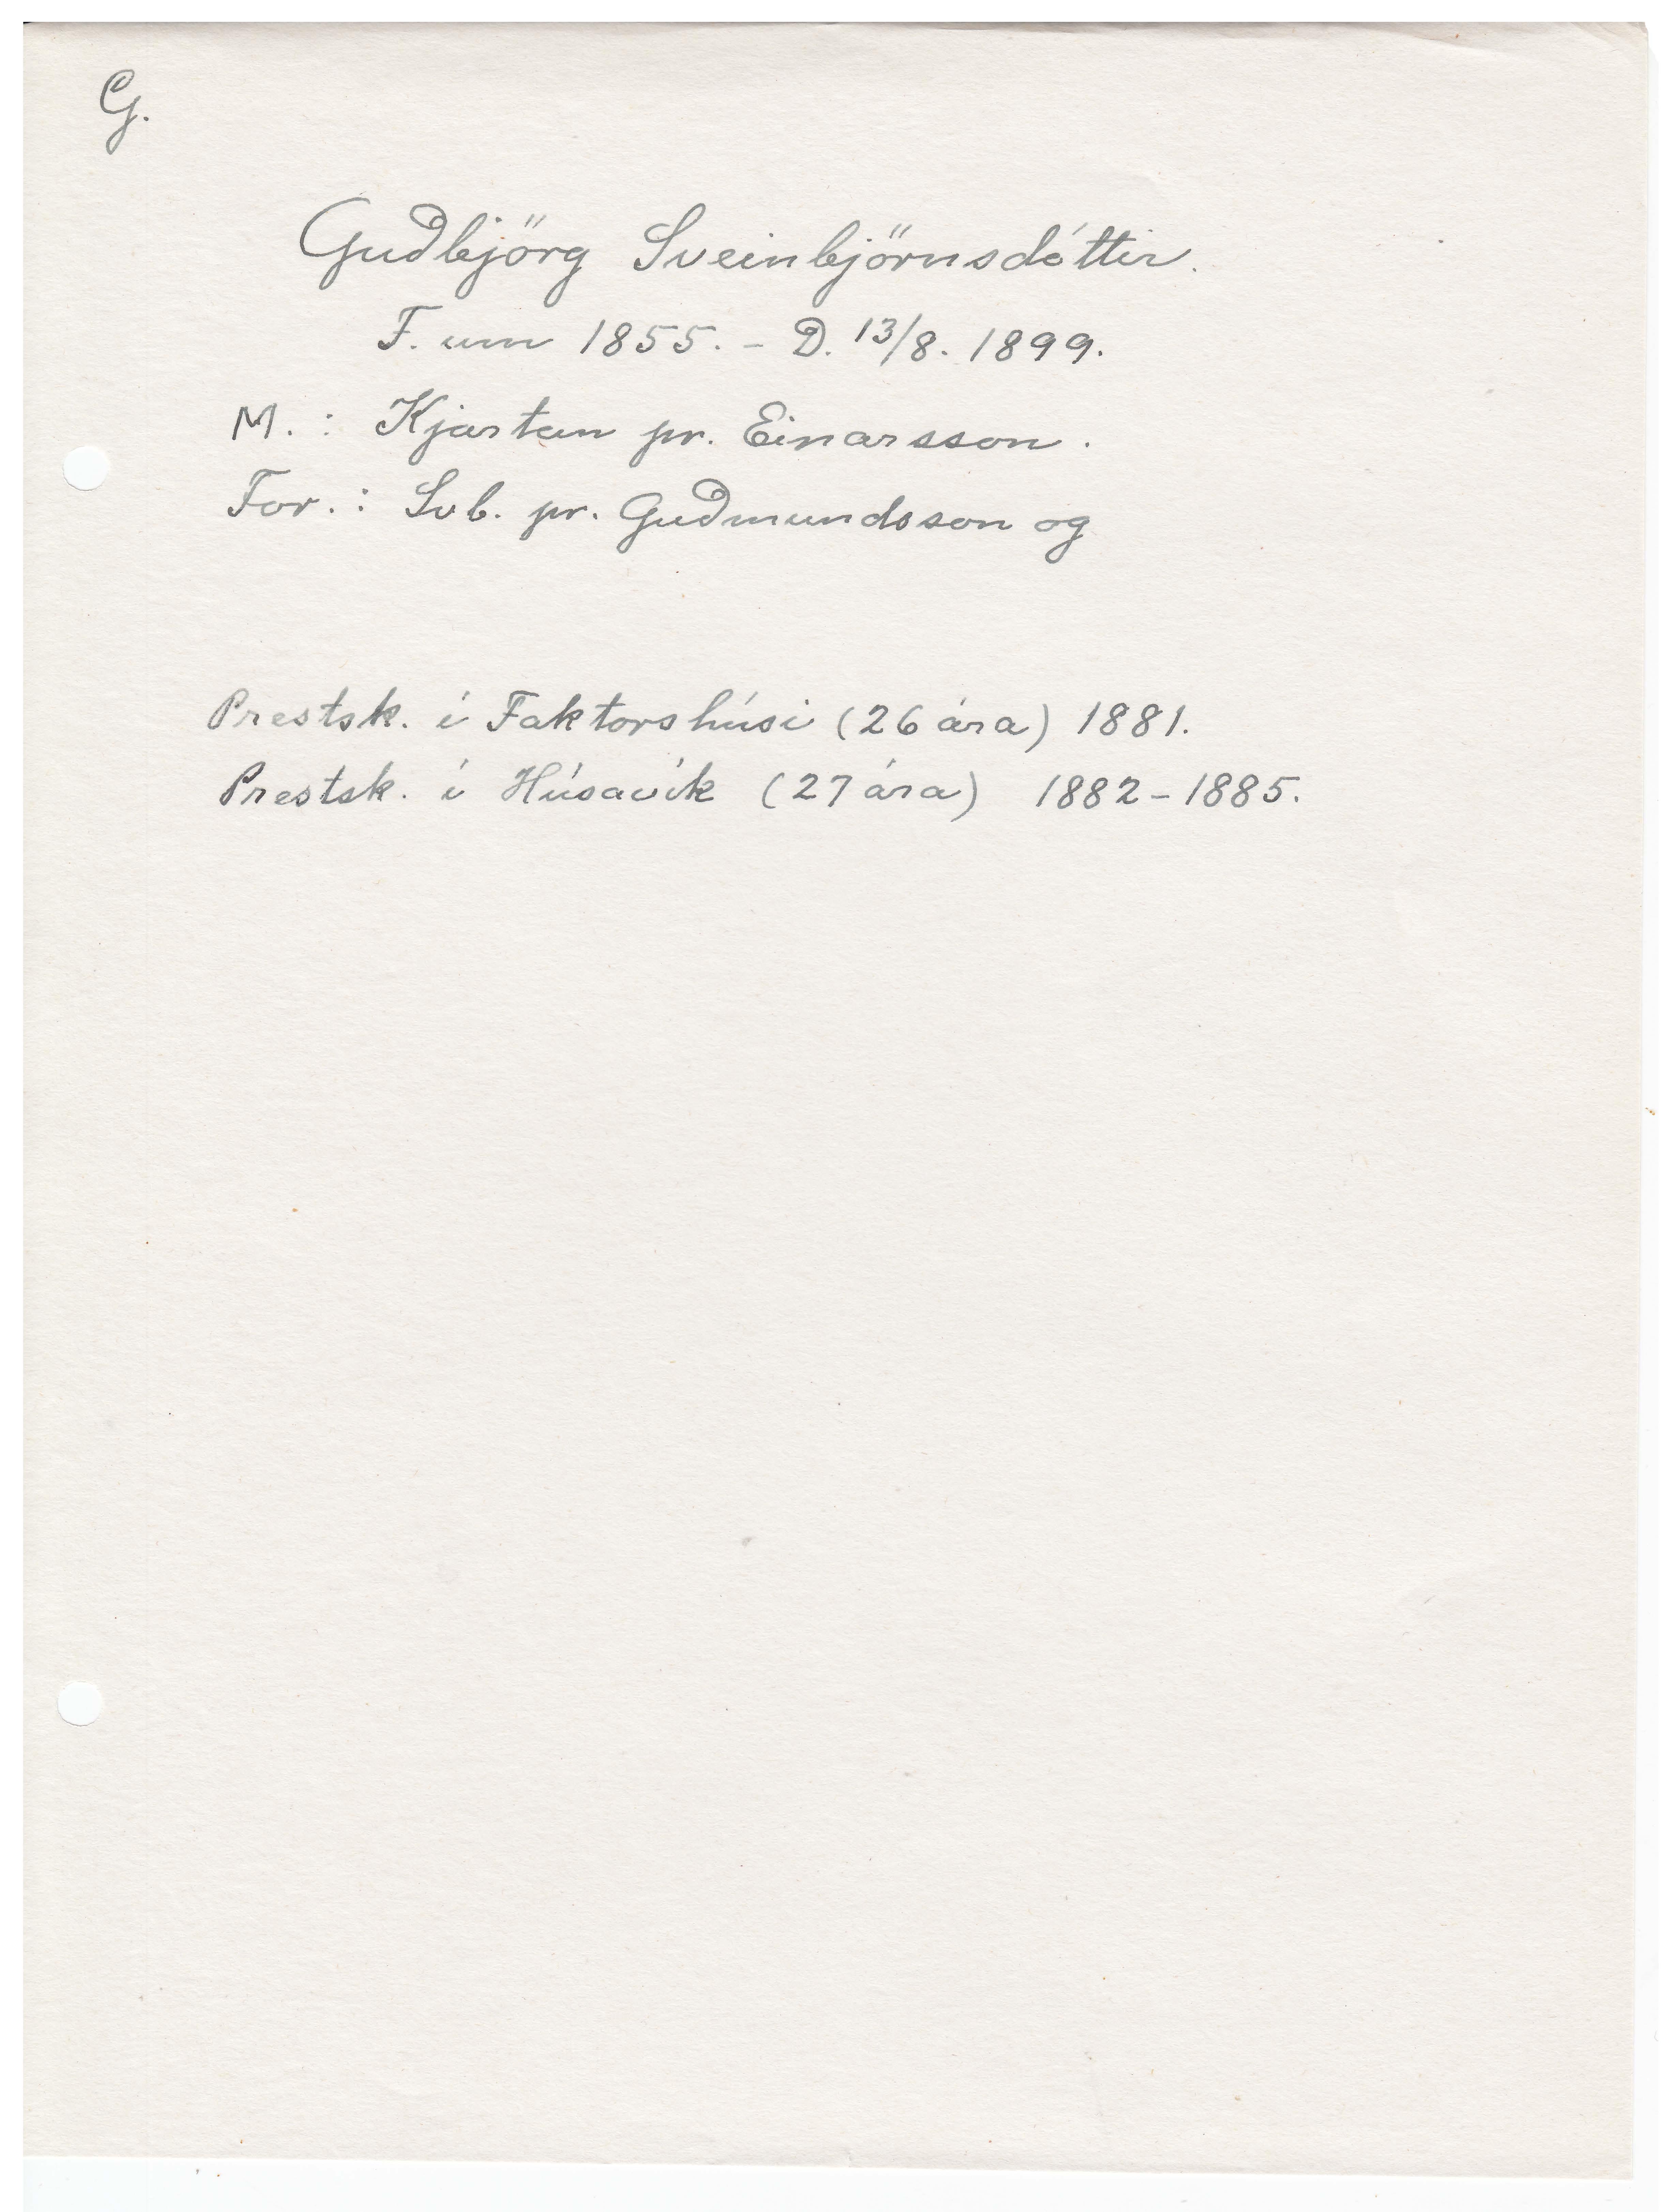 G.
Guðbjörg Sveinbjörnsdóttir.
F. um 1855. - D. 13/8. 1899.
M. : Kjartan pr. Einarsson.
For. : Svb. pr. Guðmundsson og
Prestsk. í Faktorshúsi (26 ára) 1881.
Prestsk. í Húsavík (27 ára) 1882-1885.